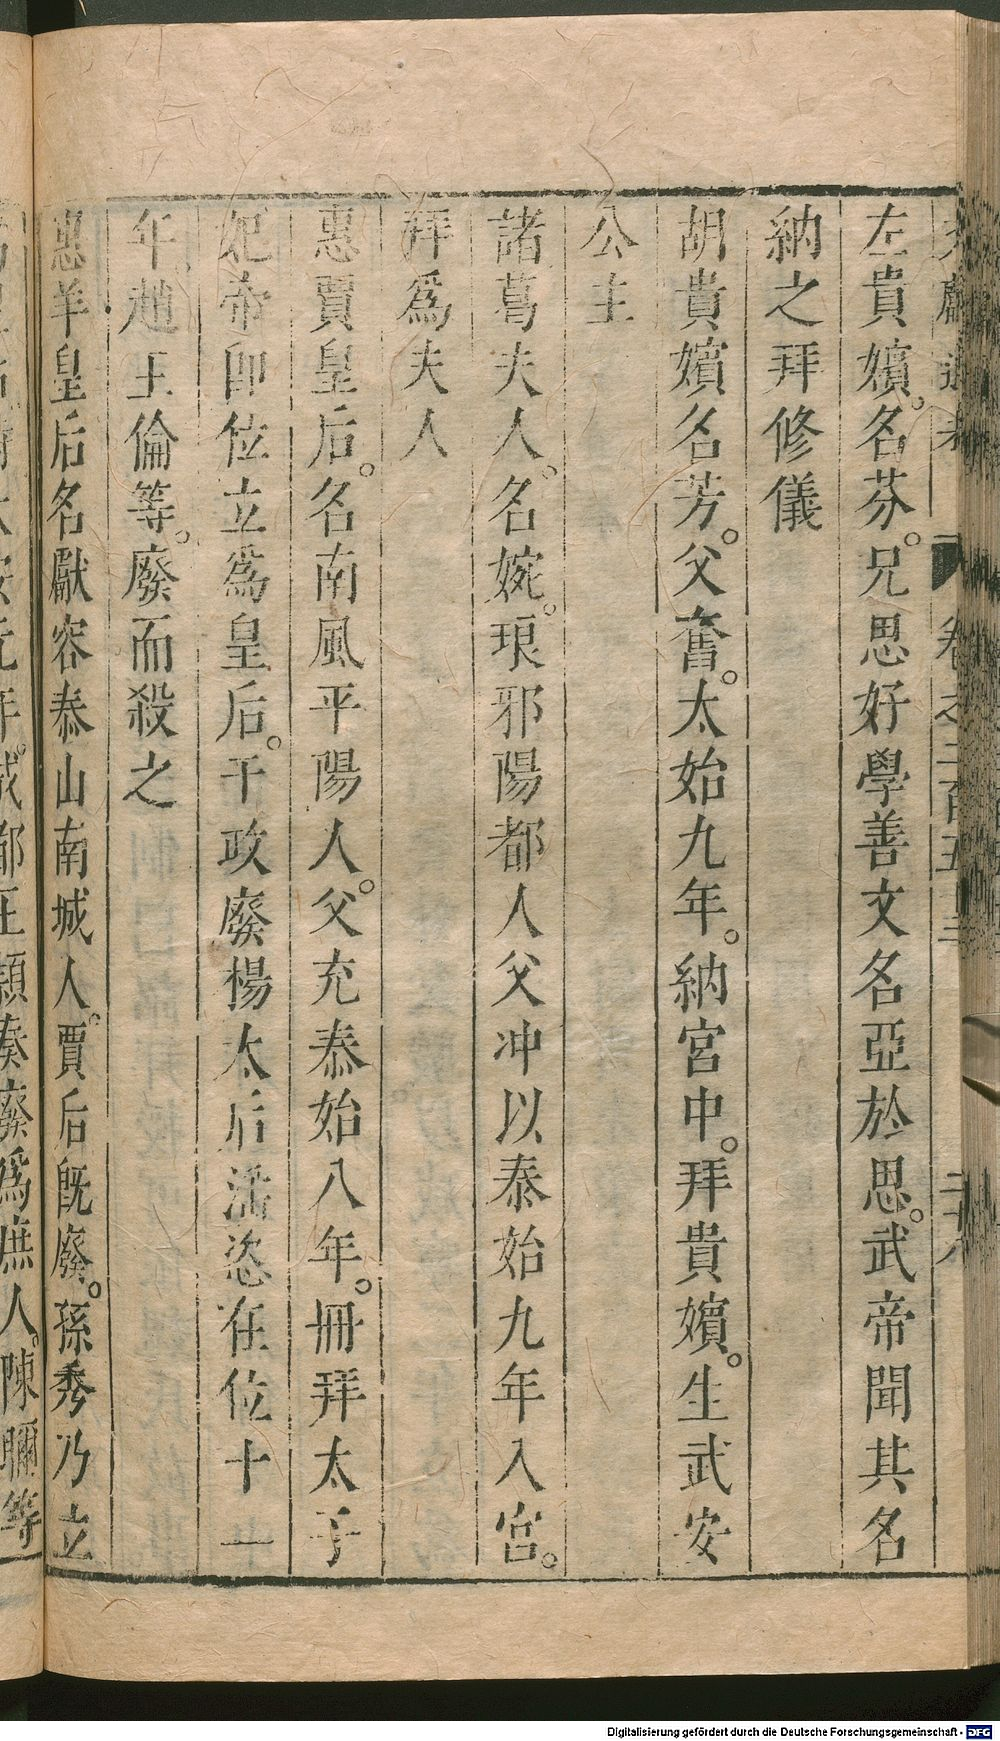 文獻通考 卷之二百五十三 二十八
左貴嬪。名芬。兄思好學善文名亞於思。武帝聞其名
納之拜修儀
胡貴嬪名芳。父奮。太始九年。納宮中。拜貴嬪。生武安
公主
諸葛夫人。名婉。琅邪陽都人父冲以泰始九年入宮。
拜爲夫人
惠賈皇后。名南風平陽人。父充泰始八年。冊拜太子
妃帝卽位立爲皇后。干政廢楊太后淫恣在位十一
年趙王倫等。廢而殺之
惠羊皇后名獻容泰山南城人。賈后旣廢。孫秀乃立
年。成都王頴奏廢爲庶人。陳眕等
Digitalisierung gefördert durch die Deutsche Forschungsgemeinschaft - DFG